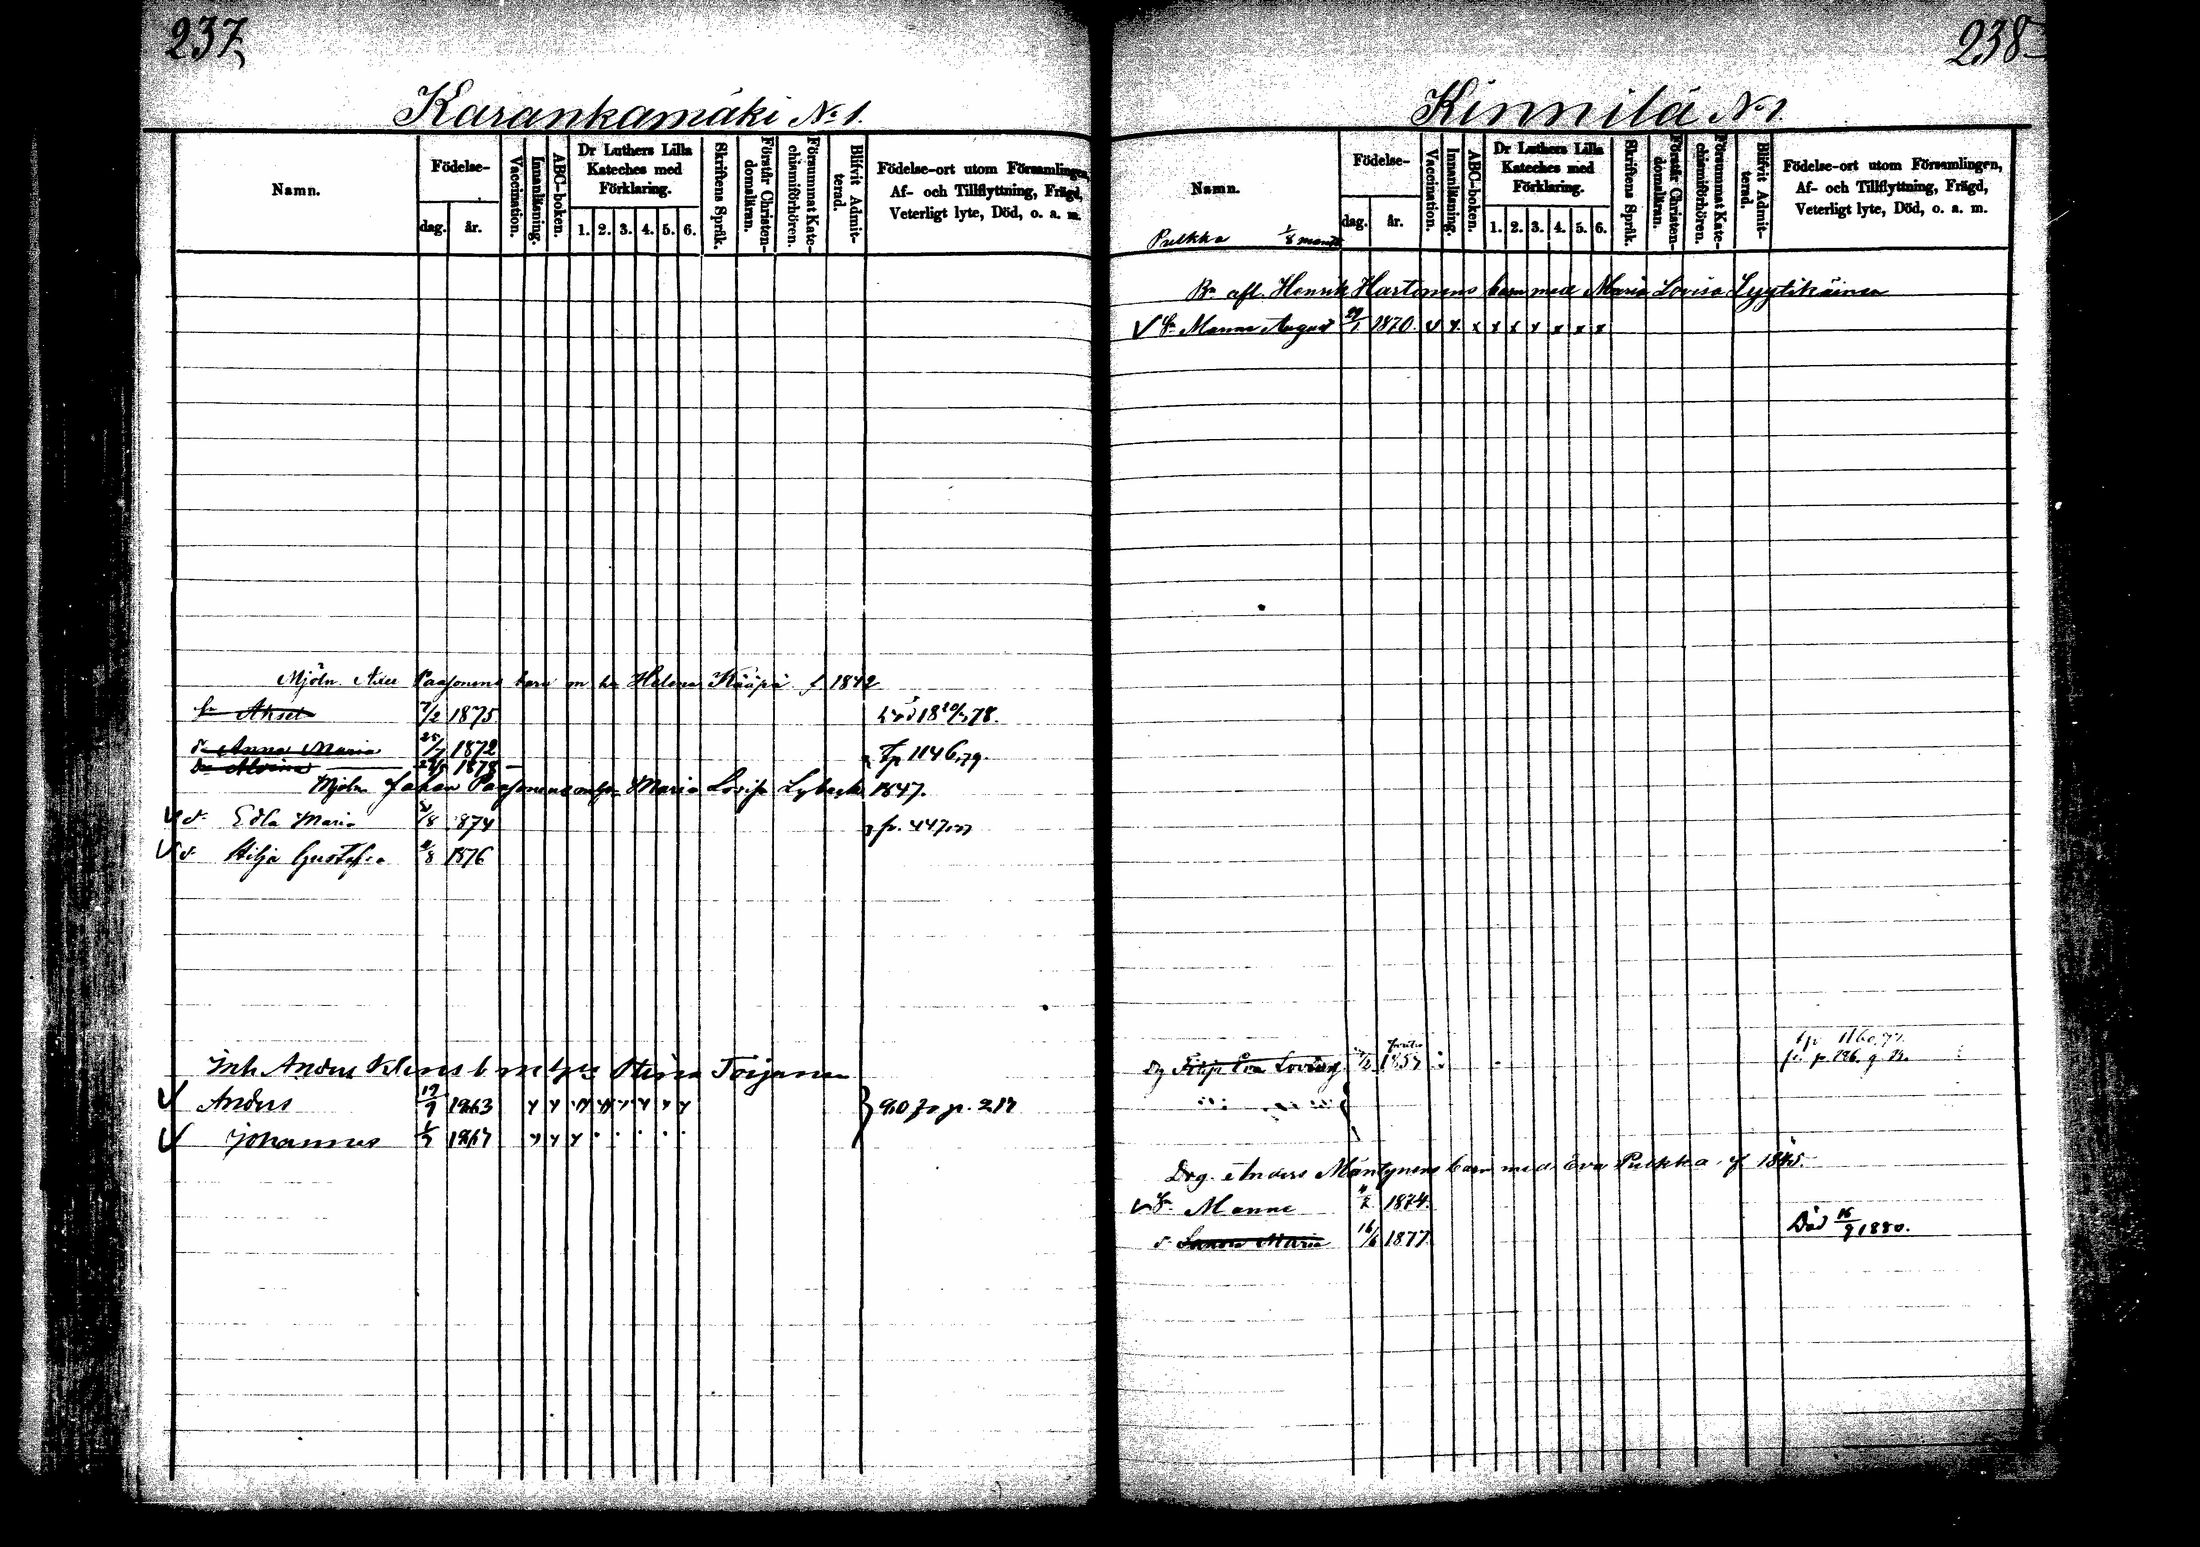 237
Karankamäki No 1.
Namn.
Födelse-
dag.
år.
Vaccination.
Innanläsning.
ABC-boken.
Dr Luthers Lilla Kateches med Förklaring.
1. 2. 3. 4. 5. 6.
Skriftens Språk.
Förstår Christendomsläran.
Försummat Katechismiförhören.
Blifvit Admitterad.
Födelse-ort utom Församlingen,
Af- och Tillflyttning, Frägd,
Veterligt lyte, Död, o. a. m.
Mjöln. Paasonens barn m Helena Kääpä f 1842
Sn Aksel 7/2 1875
d. Anna Maria 25/7 1872 1146,79.
Dr Alvina 1878
Mjöln Johan Paasonens Maria Lovisa 1847.
d. Edla Maria /8 874 447
d. Hilja Gustafva /8 1876
Inh. Anders b m Stina Toijanen
Anders 19/9 1863 p. 217
Johannes 1867
238
Kinnilä No 1.
Namn.
Födelse-
dag.
år.
Vaccination.
Innanläsning.
ABC-boken.
Dr Luthers Lilla Kateches med Förklaring.
1. 2. 3. 4. 5. 6.
Skriftens Språk.
Förstår Christendomsläran.
Försummat Katechismiförhören.
Blifvit Admitterad.
Födelse-ort utom Församlingen,
Af- och Tillflyttning, Frägd,
Veterligt lyte, Död, o. a. m.
Pulkka 1/8 mant
Bn afl. Henrik Hartonens barn med Maria Lovisa Lyytikäinen
Sn Manne August 1870 x x x x x x x
1160,77.
Eva 1857 p. 286
Drg. Anders Mäntynens barn med Eva Pulkka f 1845.
Sn Manne 1874.
d. Maria 16/6 1877 Död 15/9 1880.